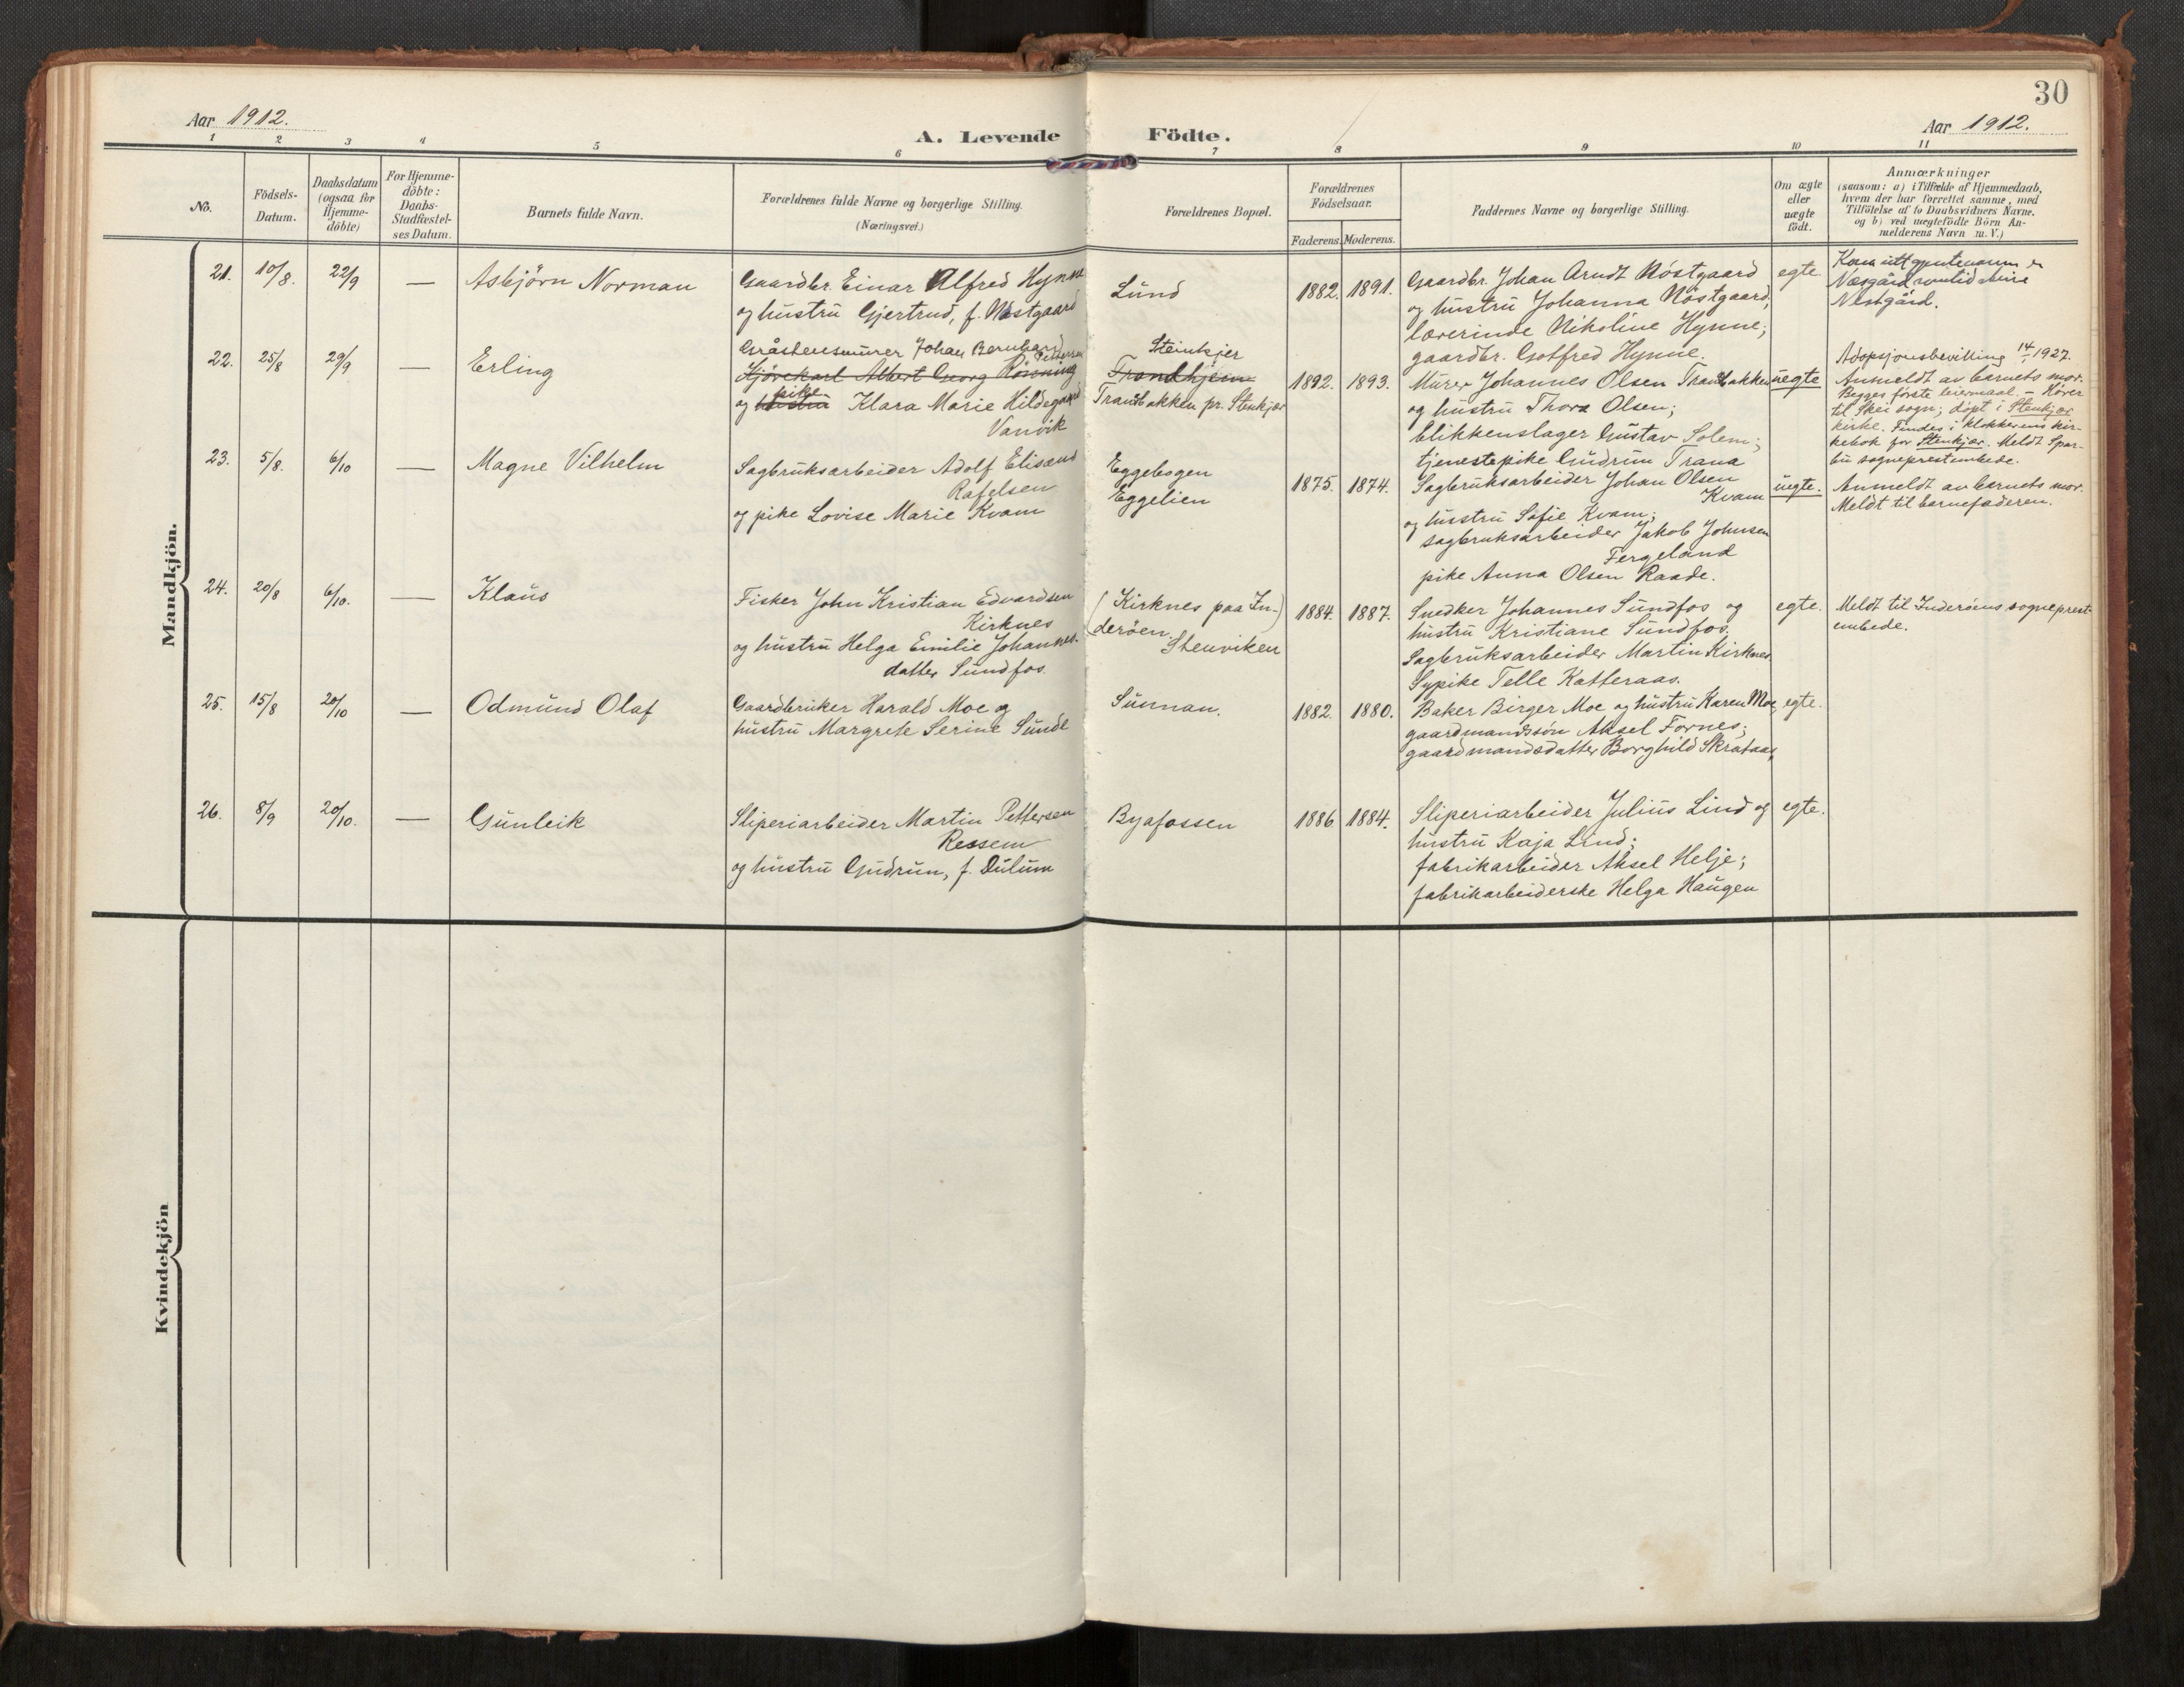 30
Aar 1912.
A. Levende Födte.
Aar 1912.
1 2 3 4 5 6 7 8 9 10 11
No.
Födsels-
Datum.
Daabsdatum
(ogsaa for
Hjemme-
döbte)
For Hjemme-
döbte:
Daabs-
Stadfæstel-
ses Datum.
Barnets fulde Navn.
Forældrenes fulde Navne og borgerlige Stilling.
(Næringsvei.)
Forældrenes Bopæl.
Forældrenes
Födselsaar.
Faderens. Moderens.
Faddernes Navne og borgerlige Stilling.
Om ægte
eller
uægte
födt.
Anmærkninger
(saasom: a) i Tilfælde af Hjemmedaab,
hvem der har forrettet samme, med
Tilföielse af to Daabsvidners Navne.
og b) ved uegtefödte Börn An-
melderens Navn m. V.)
Mandkjön.
21. 10/8. 22/9 — Asbjörn Norman
Gaardbr. Einar Alfred Hynne
og hustru Gjertrud, f. Nöstgaard
Lund
1882. 1891.
Gaardbr. Johan Arndt Nöstgaard
og hustru Johanna Nöstgaard;
lærerinde Nikoline Hynne;
gaardbr. Gotfred Hynne.
egte
Nestgård.
22. 25/8 29/9 — Erling
Gråstensmurer Johan Bernhard
Pettersen
Kjörekarl Albert Georg Rönning
pike
og hustru Klara Marie Hildegard
Vanvik
Steinkjer
Trondhjem
Tranabakken pr. Stenkjær
1892. 1893.
Murer Johannes Olsen Tranabakken
og hustru Thora Olsen;
blikkenslager Gustav Solem;
tjenestepike Gudrun Trana
uegte
Adopsjonsbevilling 14/- 1927.
Anmeldt av barnets mor.
Begges förste leiermaal. — Hörer
til Skei sogn; döpt i Stenkjær
kirke. Findes i klokkerens kir-
kebok for Stenkjær. Meldt Spar-
bu sogneprestembede.
23. 5/8. 6/10 — Magne Vilhelm
Sagbruksarbeider Adolf Elisæus
Rafelsen
og pike Lovise Marie Kvam
Eggebogen
Eggelien
1875. 1874.
Sagbruksarbeider Johan Olsen
Kvam
og hustru Sofie Kvam;
sagbruksarbeider Jakob Johnsen
Fergeland
pike Anna Olsen Raade.
uegte.
Anmeldt av barnets mor.
Meldt til barnefaderen.
24. 20/8 6/10. — Klaus
Fisker John Kristian Edvardsen
Kirknes
og hustru Helga Emilie Johannes-
datter Sundfos.
(Kirknes paa In-)
deröen.
Stenviken
1884. 1887.
Snedker Johannes Sundfos og
hustru Kristiane Sundfos.
Sagbruksarbeider Martin Kirknes
Sypike Telle Katteraas.
egte.
Meldt til Inderöens sogneprest-
embede.
25. 15/8 20/10 — Odmund Olaf
Gaardbruker Harald Moe og
hustru Margrete Serine Sunde
Sunnan.
1882. 1880.
Baker Birger Moe og hustru Karen Moe,
gaardmandssön Aksel Fornes;
gaardmandsdatter Borghild Skrataas,
egte.
26. 8/9 20/10. — Gunleik
Sliperiarbeider Martin Pettersen
Ressem
og hustru Gudrun, f. Dulum
Byafossen
1886 1884.
Sliperiarbeider Julius Lind og
hustru Kaja Lind;
fabrikarbeider Aksel Helje;
fabrikarbeiderske Helga Haugen
egte.
Kvindekjön